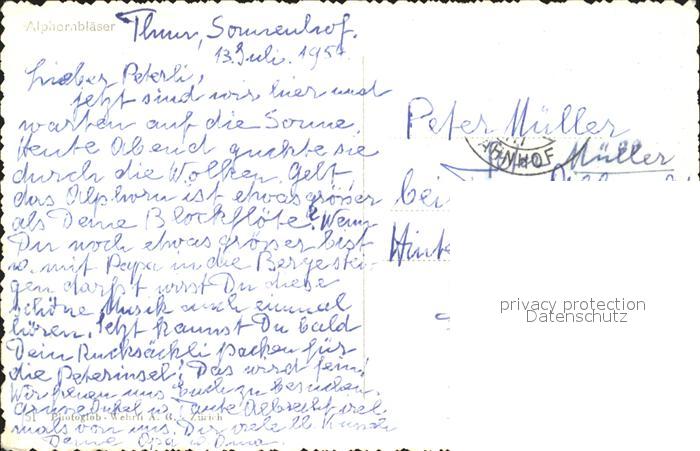 Alphornbläser
Thun, Sonnenhof.
13. Juli. 195
Lieber Peterli,
Jetzt sind wir hier und
warten auf die Sonne.
Heute Abend guckte sie
durch die Wolken. Gelt
das Alphorn ist etwas grösser
als Deine Blockflöte? Wenn
Du noch etwas grösser bist
u. mit Papa in die Berge stei-
gen darfst wirst Du diese
schöne Musik auch einmal
hören. Jetzt kannst Du bald
Dein Rucksäckli packen für
die Petersinsel! Das wird fein!
Wir freuen uns Euch zu besuchen.
Grüsse Onkel u. Tante Albrecht viel
mals von uns. Dir viele lb. Küsse
Deine Opa u. Oma.
51 Photoglob-Wehrli A. G., Zürich
Peter Müller
NHOF
Müller
bei
Hinte
privacy protection
Datenschutz